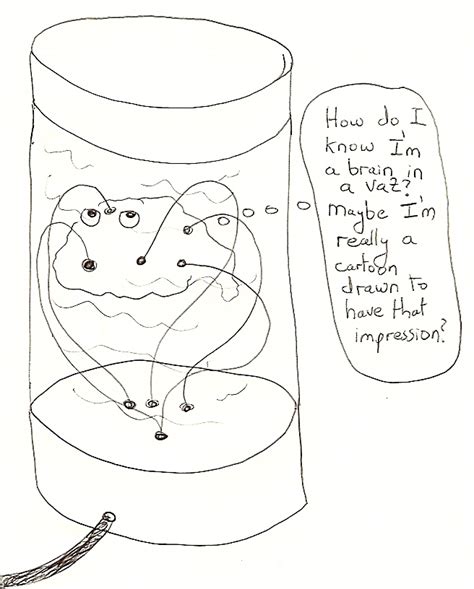 How do I
know I'm
a brain in
a vaz?
maybe I'm
really a
cartoon
drawn to
have that
impression?